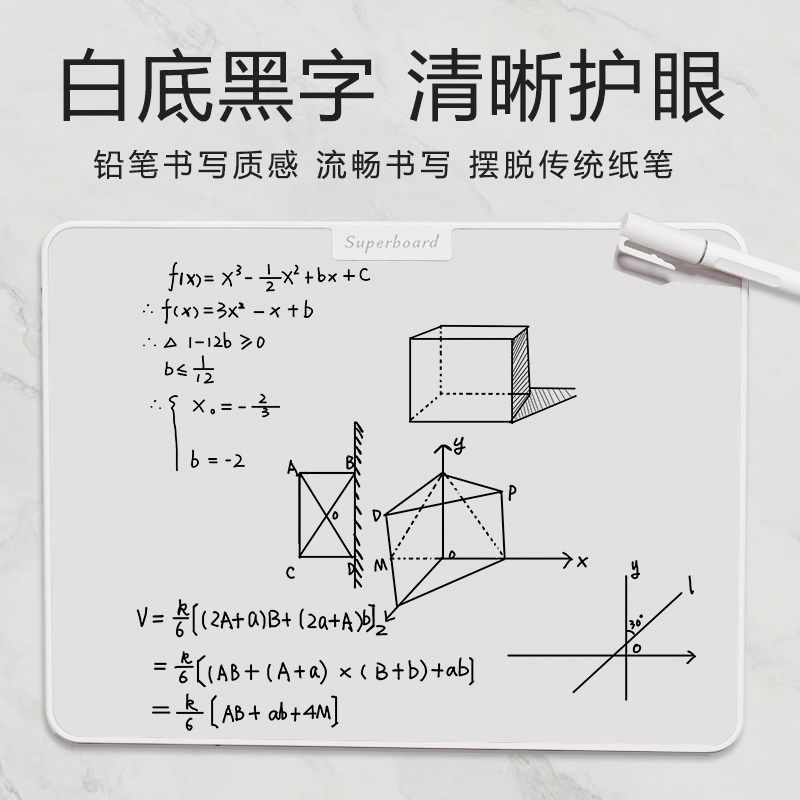 白底黑字 清晰护眼
铅笔书写质感 流畅书写 摆脱传统纸笔
Superboard
f(x)= x³-1/2x²+bx+c
∴ f(x)=3x²-x+b
∴ △ 1-12b≥0
b≤1/12
∴{ x₀=-2/3
b=-2
A B
O
C D
y
D P
M O x
z
y l
30°
O
V=k/6[(2A+a)B+(2a+A)b]
=k/6[(AB+(A+a)×(B+b)+ab]
=k/6[AB+ab+4M]